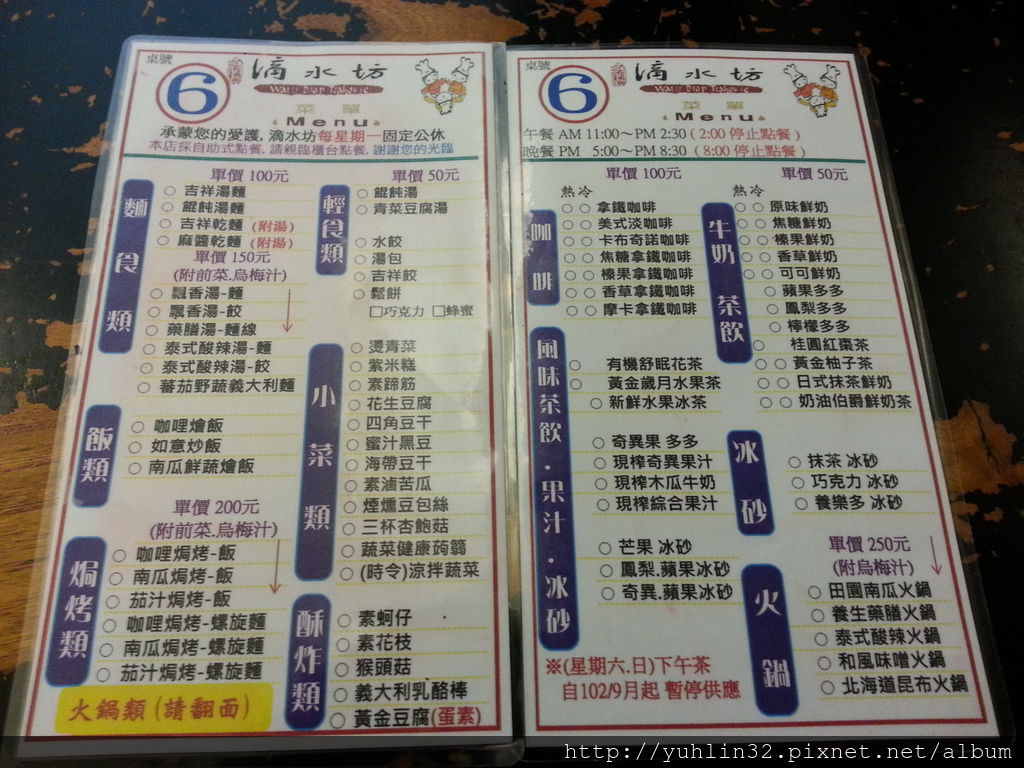 桌號
6
滴水坊
Water Drop Teahouse
菜單
Menu
承蒙您的愛護, 滴水坊每星期一固定公休
本店採自助式點餐, 請親臨櫃台點餐, 謝謝您的光臨
麵食類
單價 100元
吉祥湯麵
餛飩湯麵
吉祥乾麵 (附湯)
麻醬乾麵 (附湯)
單價150元
(附前菜.烏梅汁)
飄香湯-麵
飄香湯-餃
藥膳湯-麵線
泰式酸辣湯-麵
泰式酸辣湯-餃
蕃茄野蔬義大利麵
飯類
咖哩燴飯
如意炒飯
南瓜鮮蔬燴飯
單價 200元
(附前菜.烏梅汁)
焗烤類
咖哩焗烤-飯
南瓜焗烤-飯
茄汁焗烤-飯
咖哩焗烤-螺旋麵
南瓜焗烤-螺旋麵
茄汁焗烤-螺旋麵
火鍋類 (請翻面)
單價 50元
輕食類
餛飩湯
青菜豆腐湯
水餃
湯包
吉祥餃
鬆餅
□巧克力 □蜂蜜
小菜類
燙青菜
紫米糕
素蹄筋
花生豆腐
四角豆干
蜜汁黑豆
海帶豆干
素滷苦瓜
煙燻豆包絲
三杯杏鮑菇
蔬菜健康蒟蒻
(時令)涼拌蔬菜
酥炸類
素蚵仔
素花枝
猴頭菇
義大利乳酪棒
黃金豆腐(蛋素)
桌號
6
滴水坊
Water Drop Teahouse
菜單
Menu
午餐 AM 11:00～PM 2:30 ( 2:00 停止點餐 )
晚餐 PM 5:00～PM 8:30 ( 8:00 停止點餐 )
單價 100元
熱 冷
咖啡
拿鐵咖啡
美式淡咖啡
卡布奇諾咖啡
焦糖拿鐵咖啡
榛果拿鐵咖啡
香草拿鐵咖啡
摩卡拿鐵咖啡
風味茶飲.果汁.冰砂
有機舒眠花茶
黃金歲月水果茶
新鮮水果冰茶
奇異果 多多
現榨奇異果汁
現榨木瓜牛奶
現榨綜合果汁
芒果 冰砂
鳳梨.蘋果冰砂
奇異.蘋果冰砂
※(星期六.日)下午茶
自102/9月起 暫停供應
單價 50元
熱 冷
牛奶茶飲
原味鮮奶
焦糖鮮奶
榛果鮮奶
香草鮮奶
可可鮮奶
蘋果多多
鳳梨多多
檸檬多多
桂圓紅棗茶
黃金柚子茶
日式抹茶鮮奶
奶油伯爵鮮奶茶
冰砂
抹茶 冰砂
巧克力 冰砂
養樂多 冰砂
單價 250元
(附烏梅汁)
火鍋
田園南瓜火鍋
養生藥膳火鍋
泰式酸辣火鍋
和風味噌火鍋
北海道昆布火鍋
http://yuhlin32.pixnet.net/album